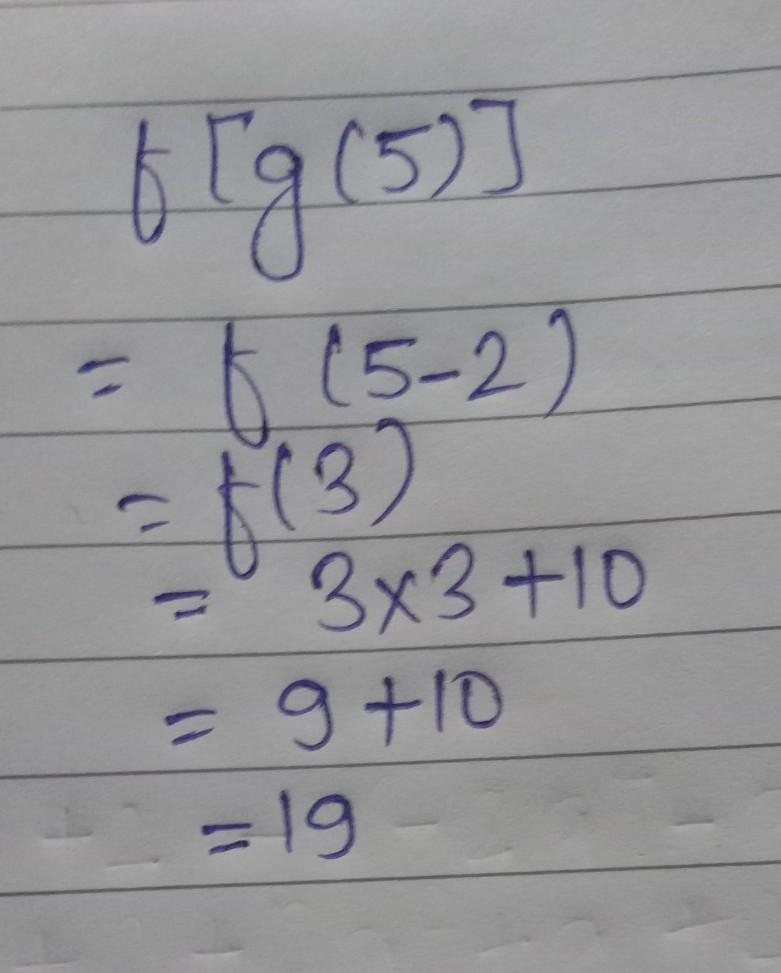 f[g(5)]
= f(5-2)
= f(3)
= 3×3+10
= 9+10
=19